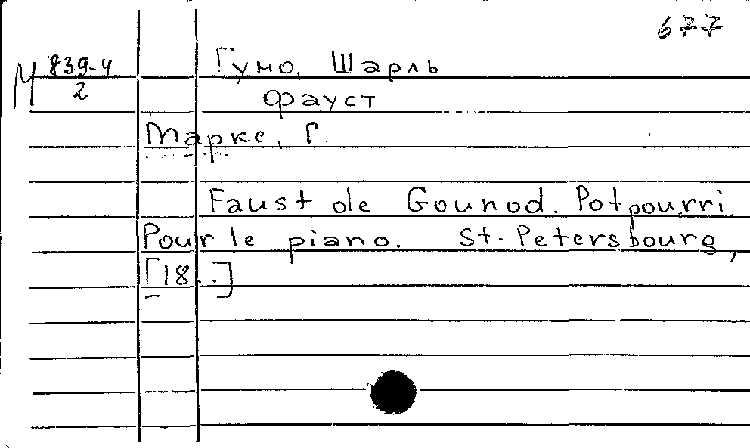 677
М 839-4
2
Гуно, Шарль
Фауст
Маркс, Г.
Faust de Gounod. Potpourri
Pour le piano. St.-Petersbourg,
[18..]